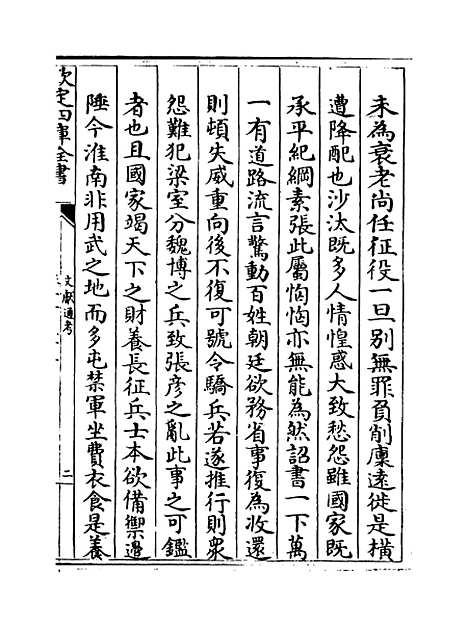 未為衰老尚任征役一旦別無罪負削廩逺徙是横
遭降配也沙汰既多人情惶惑大致愁怨雖國家既
承平紀綱素張此屬恟恟亦無能為然詔書一下萬
一有道路流言驚動百姓朝廷欲務省事復為收還
則頓失威重向後不復可號令驕兵若遂推行則衆
怨難犯梁室分魏博之兵致張彦之亂此事之可鑑
者也且國家竭天下之財養長征兵士本欲備禦邊
陲今淮南非用武之地而多屯禁軍坐費衣食是養
欽定四庫全書
文獻通考
二